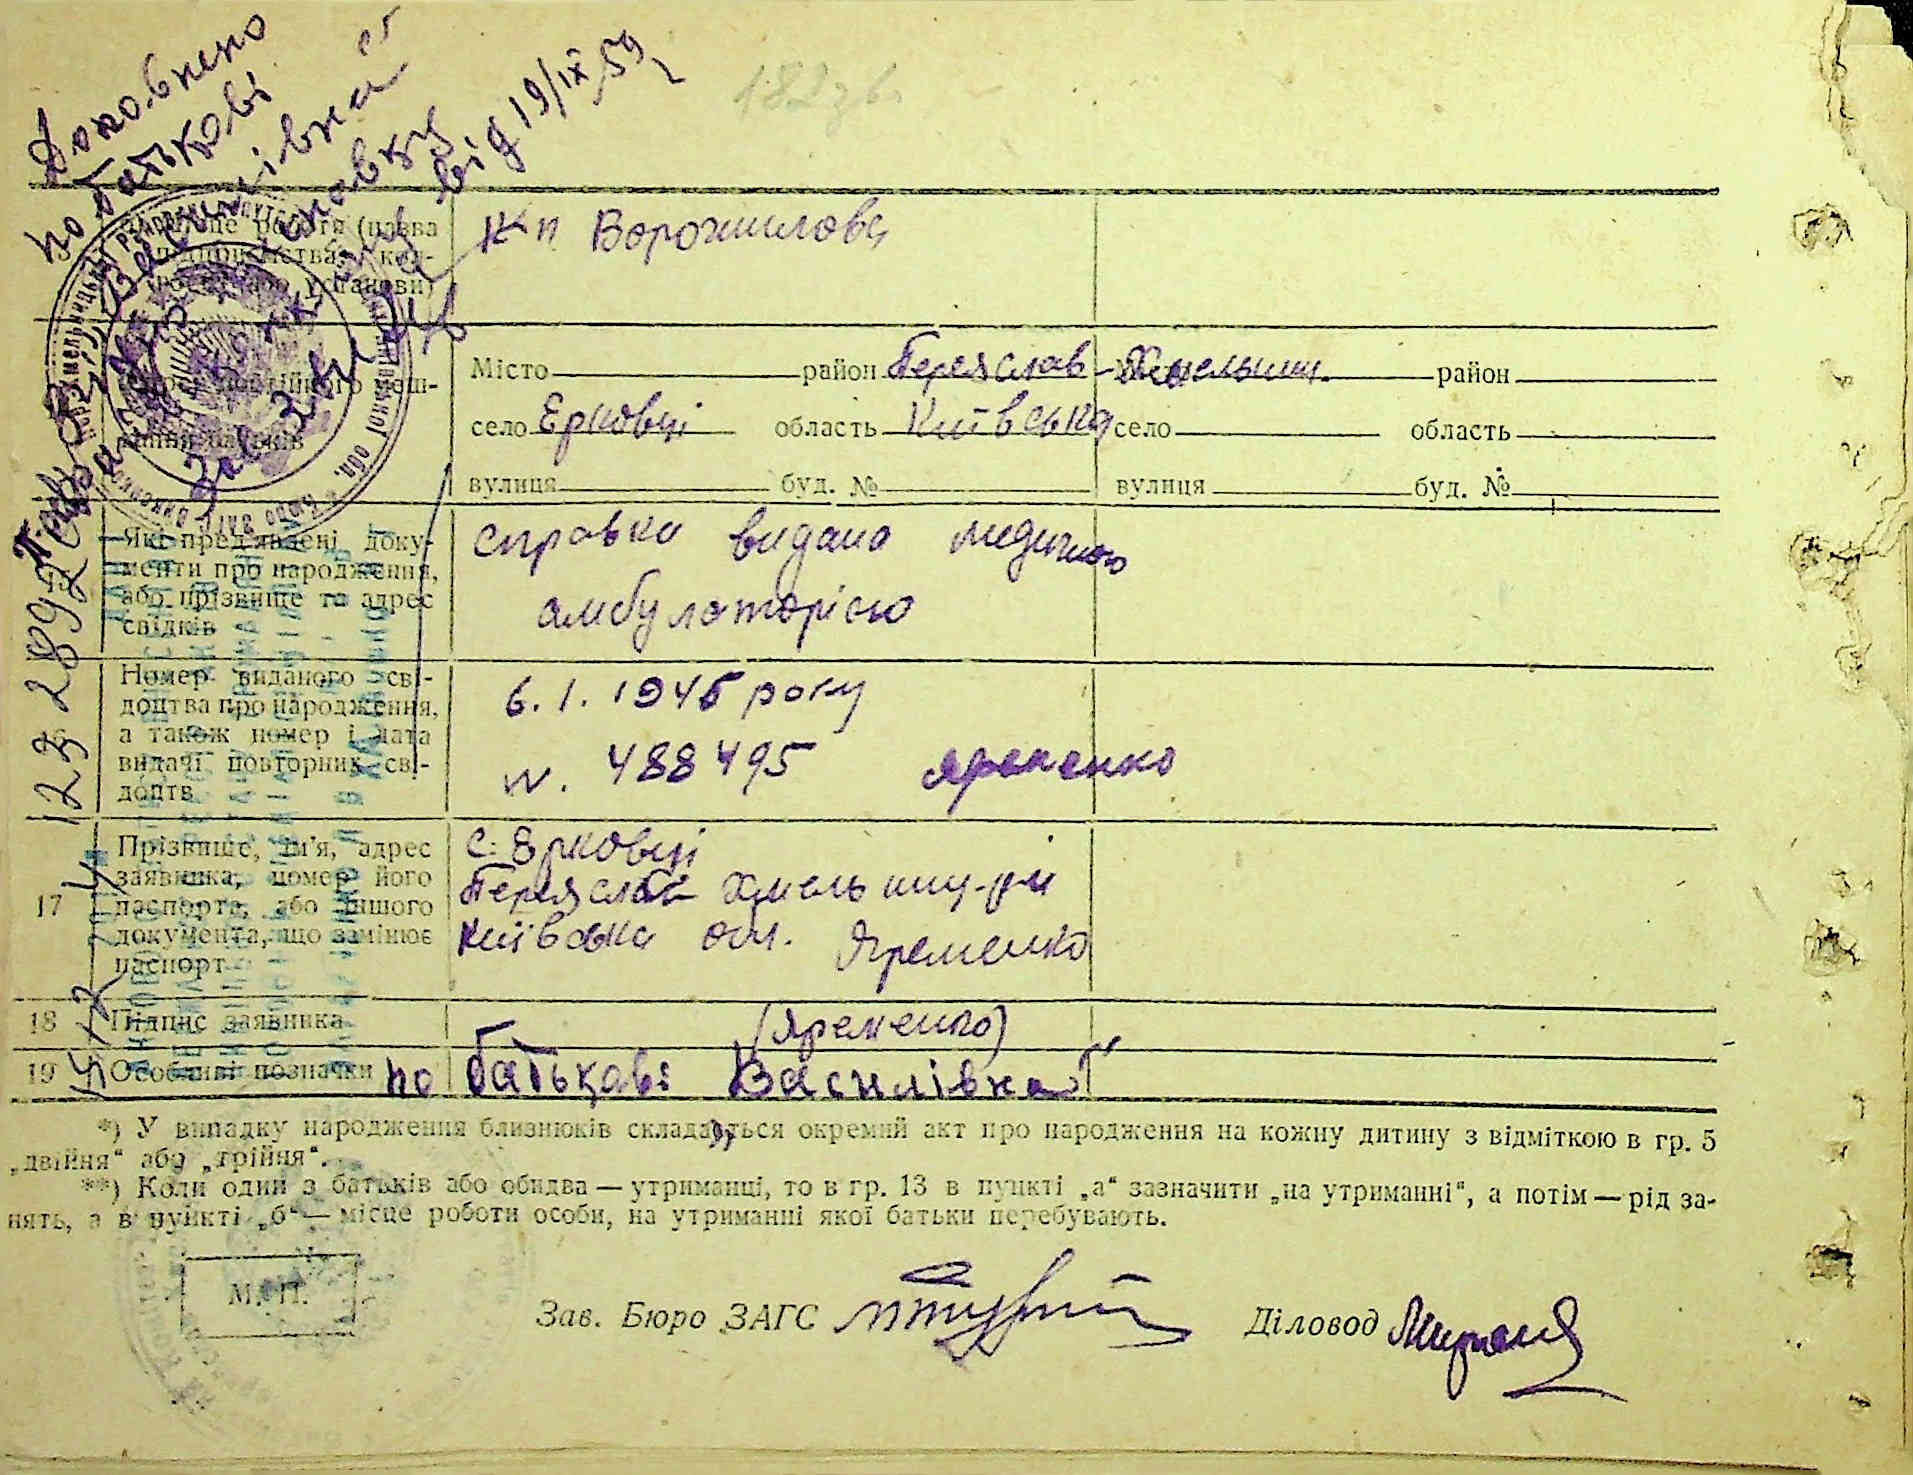 Доповнено
по батькові
Василівна
від 19/IX 59
182 зв.
місце роботи (назва
підприємства, кол-
госпу або установи)
К-п Ворошилова
постійного меш-
кання батьків
Місто район Переяслав-Хмельниц. район
село Ерковці область Київська село область
вулиця буд. № вулиця буд. №
Які пред'явлені доку-
менти про народження,
або прізвище та адрес
свідків
справка видана медичною
амбулаторією
16 Номер виданого сві-
доцтва про народження,
а також номер і дата
видачі повторних сві-
доцтв
6. 1. 1945 року
N. 488495 Яременко
17 Прізвище, ім'я, адрес
заявника, номер його
паспорта, або іншого
документа, що замінює
паспорт
с. Ерковці
Переяслав Хмельниц. р-н
Київська обл. Яременко
18 Підпис заявника (Яременко)
19 Особливі позначки по батькові Василівна
*) У випадку народження близнюків складається окремий акт про народження на кожну дитину з відміткою в гр. 5
„двійня“ або „трійня“.
**) Коли один з батьків або обидва — утриманці, то в гр. 13 в пункті „а“ зазначити „на утриманні“, а потім — рід за-
нять, а в пункті „б“ — місце роботи особи, на утриманні якої батьки перебувають.
М. П.
Зав. Бюро ЗАГС Діловод